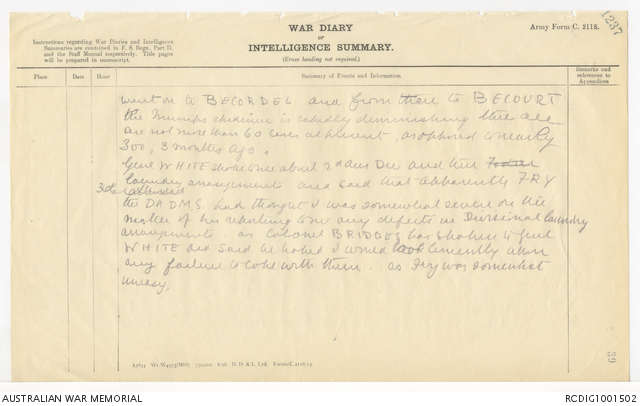 1237
WAR DIARY
or
INTELLIGENCE SUMMARY.
(Erase heading not required.)
Army Form C. 2118.
Instructions regarding War Diaries and Intelligence
Summaries are contained in F. S. Regs., Part II.
and the Staff Manual respectively. Title pages
will be prepared in manuscript.
Place
Date
Hour
Summary of Events and Information
Remarks and
references to
Appendices
went on to BECORDEL and from there to BECOURT
the Mumps epidemic is steadily diminishing there are
are not more than 60 cases at present, as opposed to nearly
300, 3 months ago.
Genl WHITE spoke once about 2 days and
laundry arrangements and said that apparently FRY
the DADMS had thought I was somewhat severe on the
matter of his reporting to me any defects in Divisional laundry
arrangements. as Colonel BRIDGES has spoken to Genl
WHITE and said he hoped I would look leniently upon
any failure to cope with them. as Fry was somewhat
uneasy.
39
AUSTRALIAN WAR MEMORIAL
RCDIG1001502